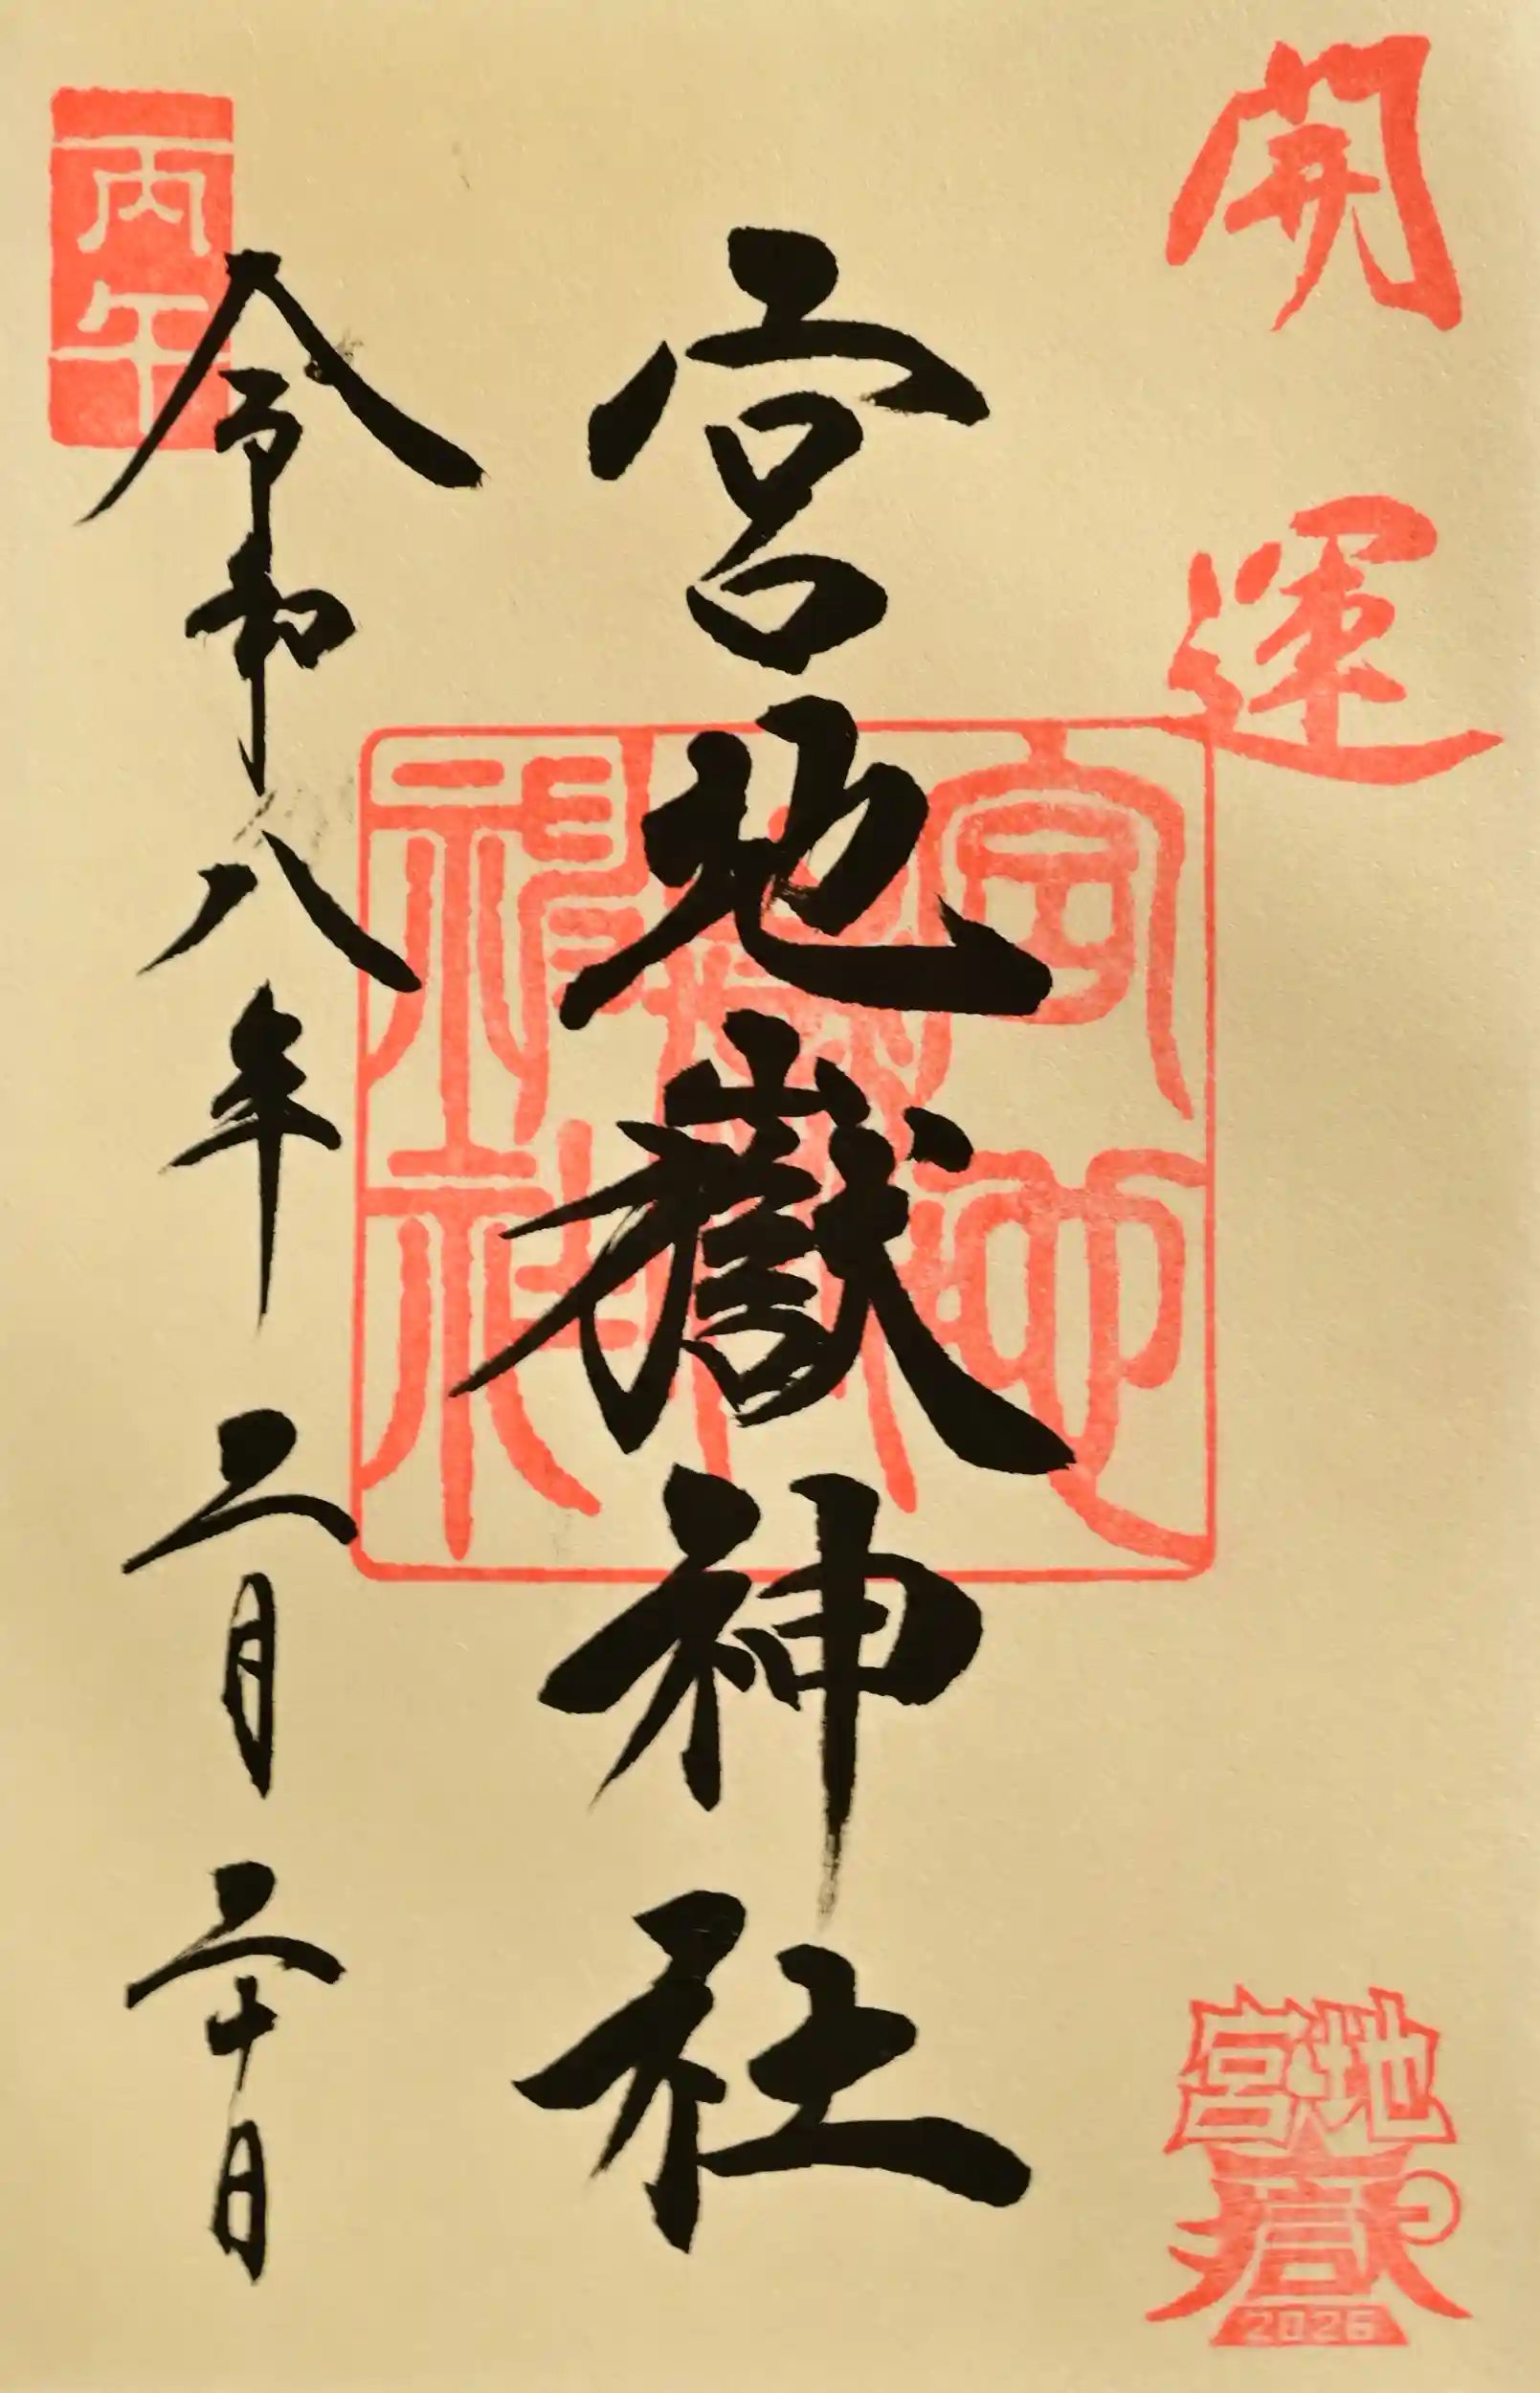 開運
宮地嶽神社
宮地嶽神社
丙午
令和八年二月二十日
宮地
嶽
2026